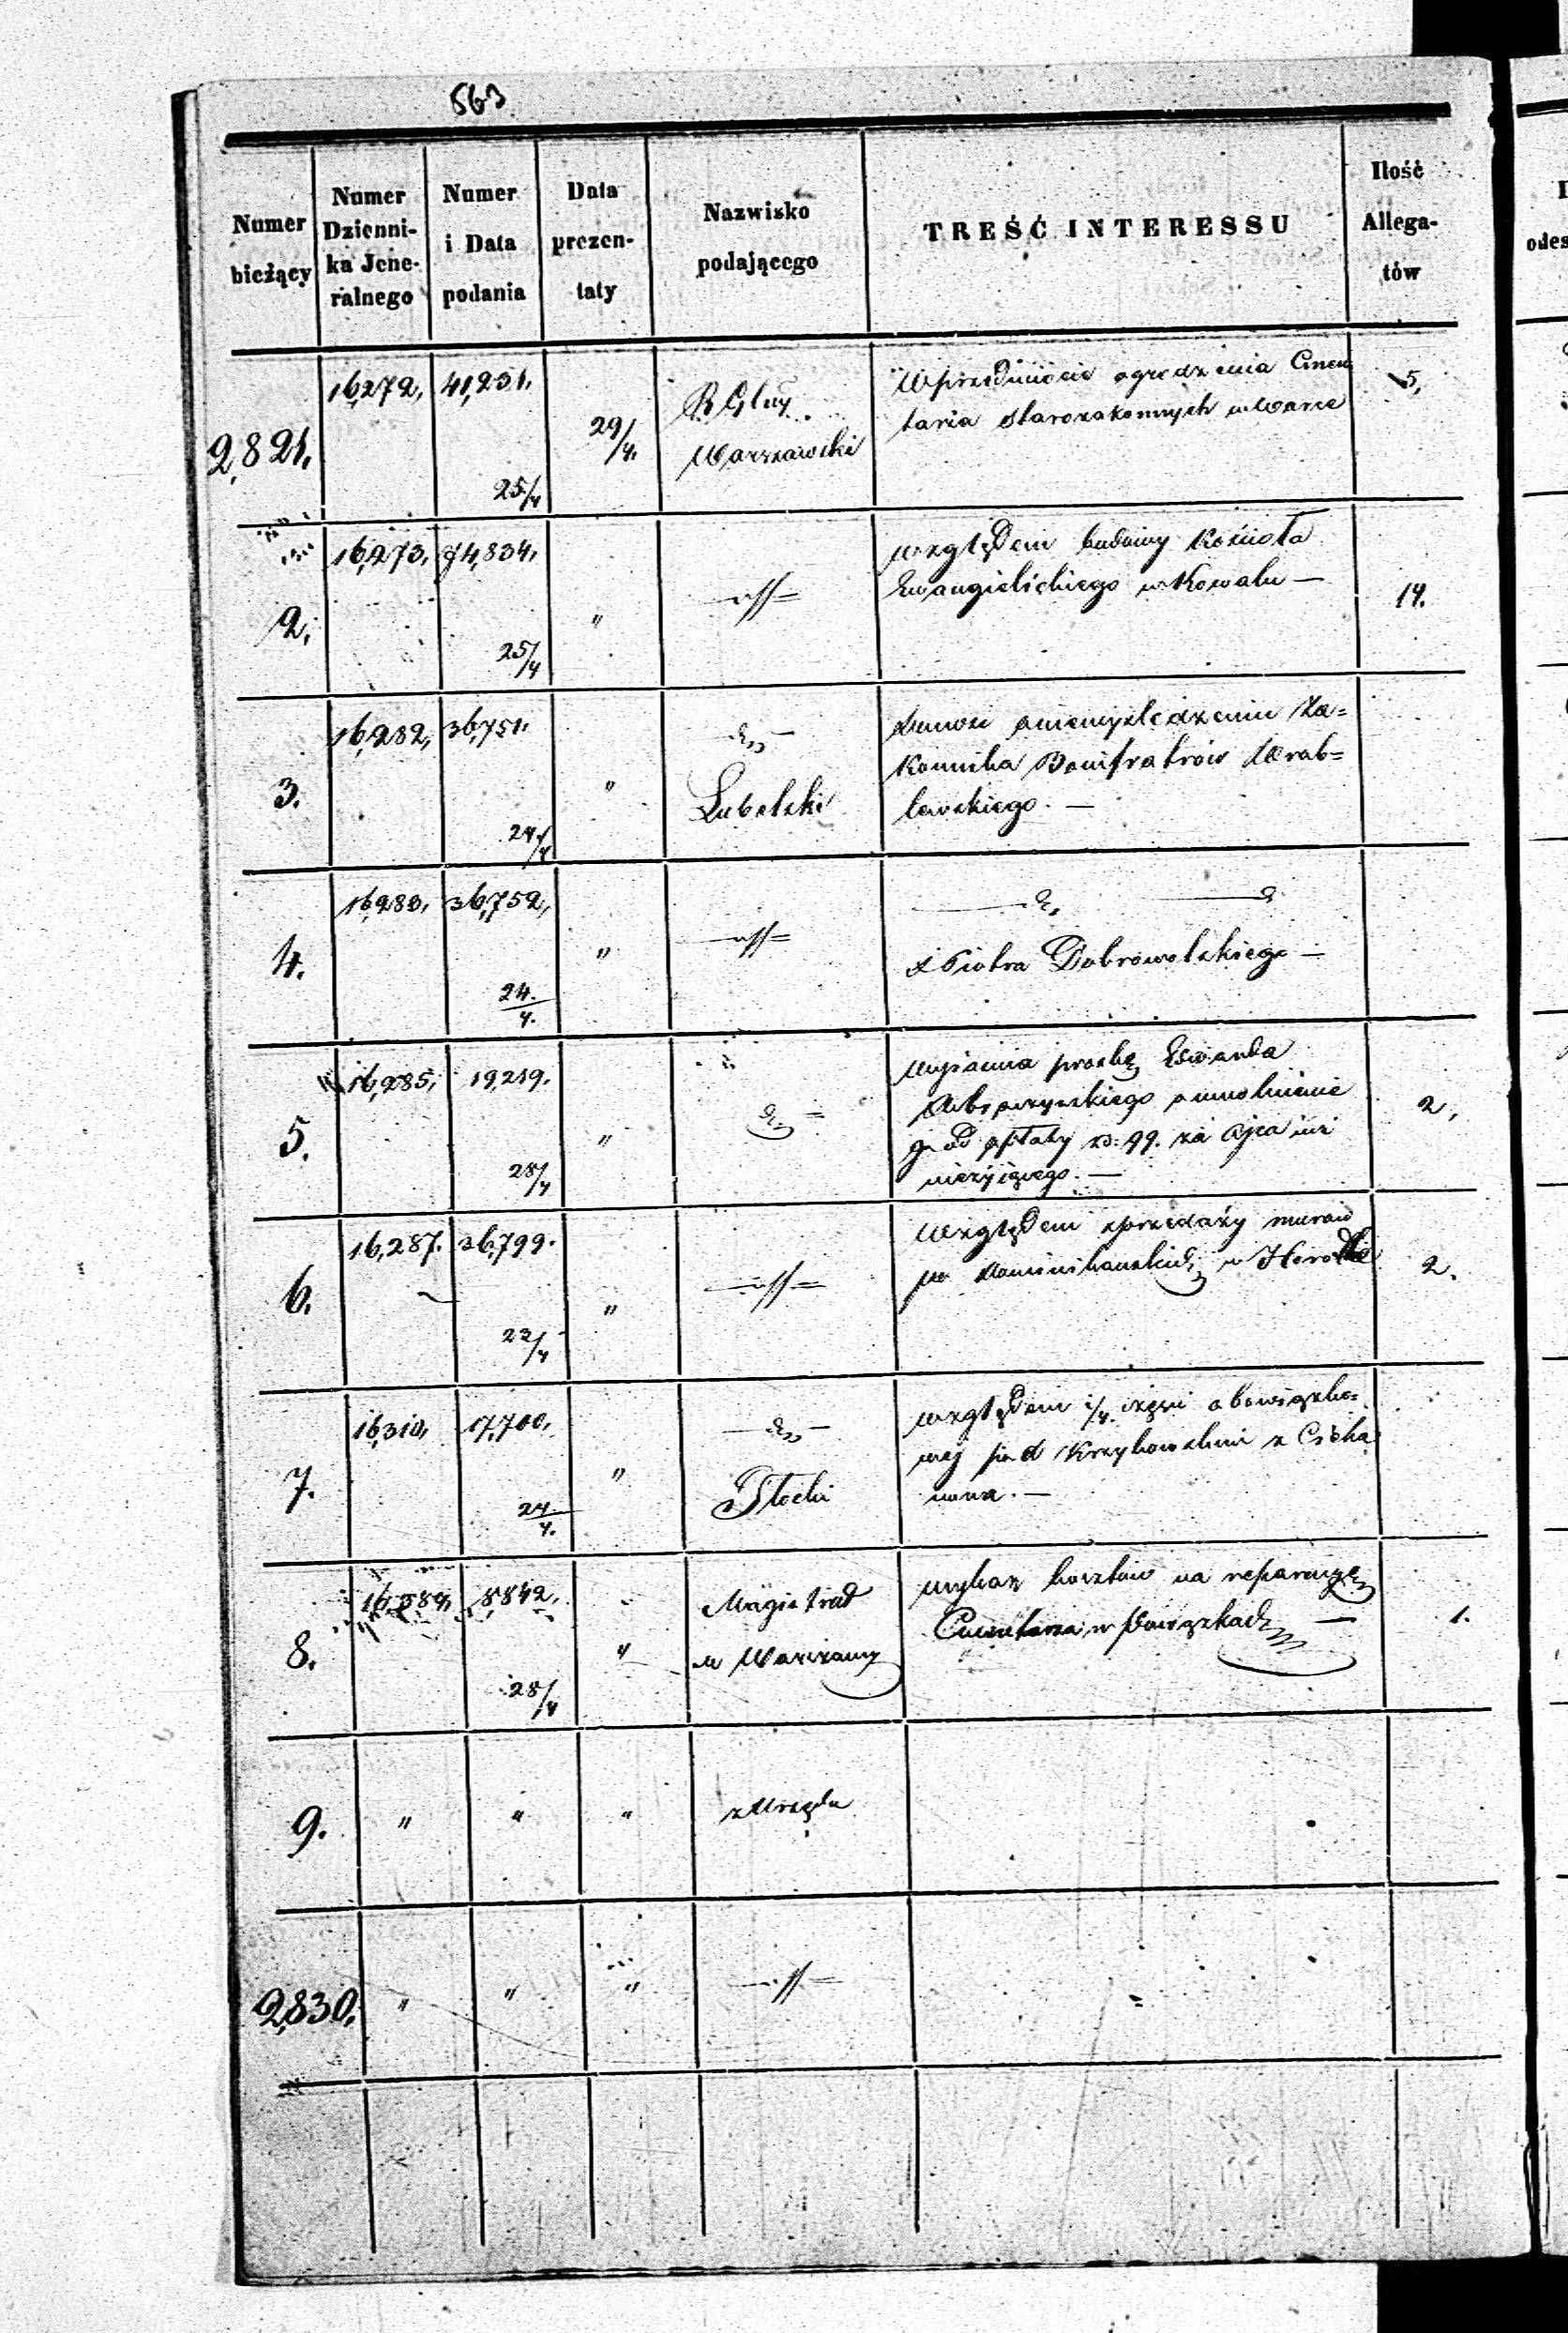 563
Numer bieżący
Numer Dzienni-ka Jene-ralnego
Numer i Data podania
Data prezen-taty
Nazwisko podającego
TREŚĆ INTERESSU
Ilość Allega-tów
2,821.
16,272,
41,231.
25/4
29/4.
R Głny
Warszawski
W przedmiocie ogrodzenia Cmen
tarza starozakonnych w Warce
5,
2.
16,273,
74,834,
25/4
"
względem budowy Kościoła
Ewangielickiego w Kowalu —
14.
3.
16,282,
36,751.
24/4
"
Lubelski
donosi o niewyśledzeniu Za=
konnika Bonifratrów Wrób=
lewskiego. —
4.
16,283,
36,752,
24./4.
"
X Piotra Dobrowolskiego —
5.
16,285,
19,219.
28/4
"
wyjaśnia prośbę Edwarda
o uwolnienie
go od opłaty rs: 99. za Ojca już
nieżyjącego. —
2,
6.
16,287.
36,799.
23/4
"
Względem sprzedaży murów
po Dominikańskich w
2.
7.
16,310,
17,700,
24./4.
"
Płocki
względem 1/4. części obowiązko=
wej pod Krzykowskim z Ciecha
nowa. —
8.
8842,
28/4
"
Magistrat
m Warszawy
wykaz kosztów na reparacyę
Cmentarza w Powązkach —
1.
9.
"
"
"
z Urzędu
2,830.
"
"
"